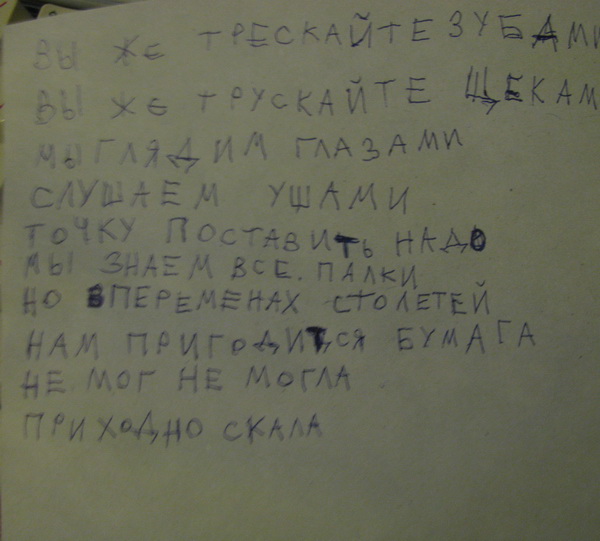 ВЫ ЖЕ ТРЕСКАЙТЕ ЗУБАМИ
ВЫ ЖЕ ТРУСКАЙТЕ ЩЕКАМ
МЫ ГЛЯДИМ ГЛАЗАМИ
СЛУШАЕМ УШАМИ
ТОЧКУ ПОСТАВИТЬ НАДО
МЫ ЗНАЕМ ВСЕ. ПАЛКИ
НО ВПЕРЕМЕНАХ СТОЛЕТЕЙ
НАМ ПРИГОДИТСЯ БУМАГА
НЕ МОГ НЕ МОГЛА
ПРИХОДНО СКАЛА